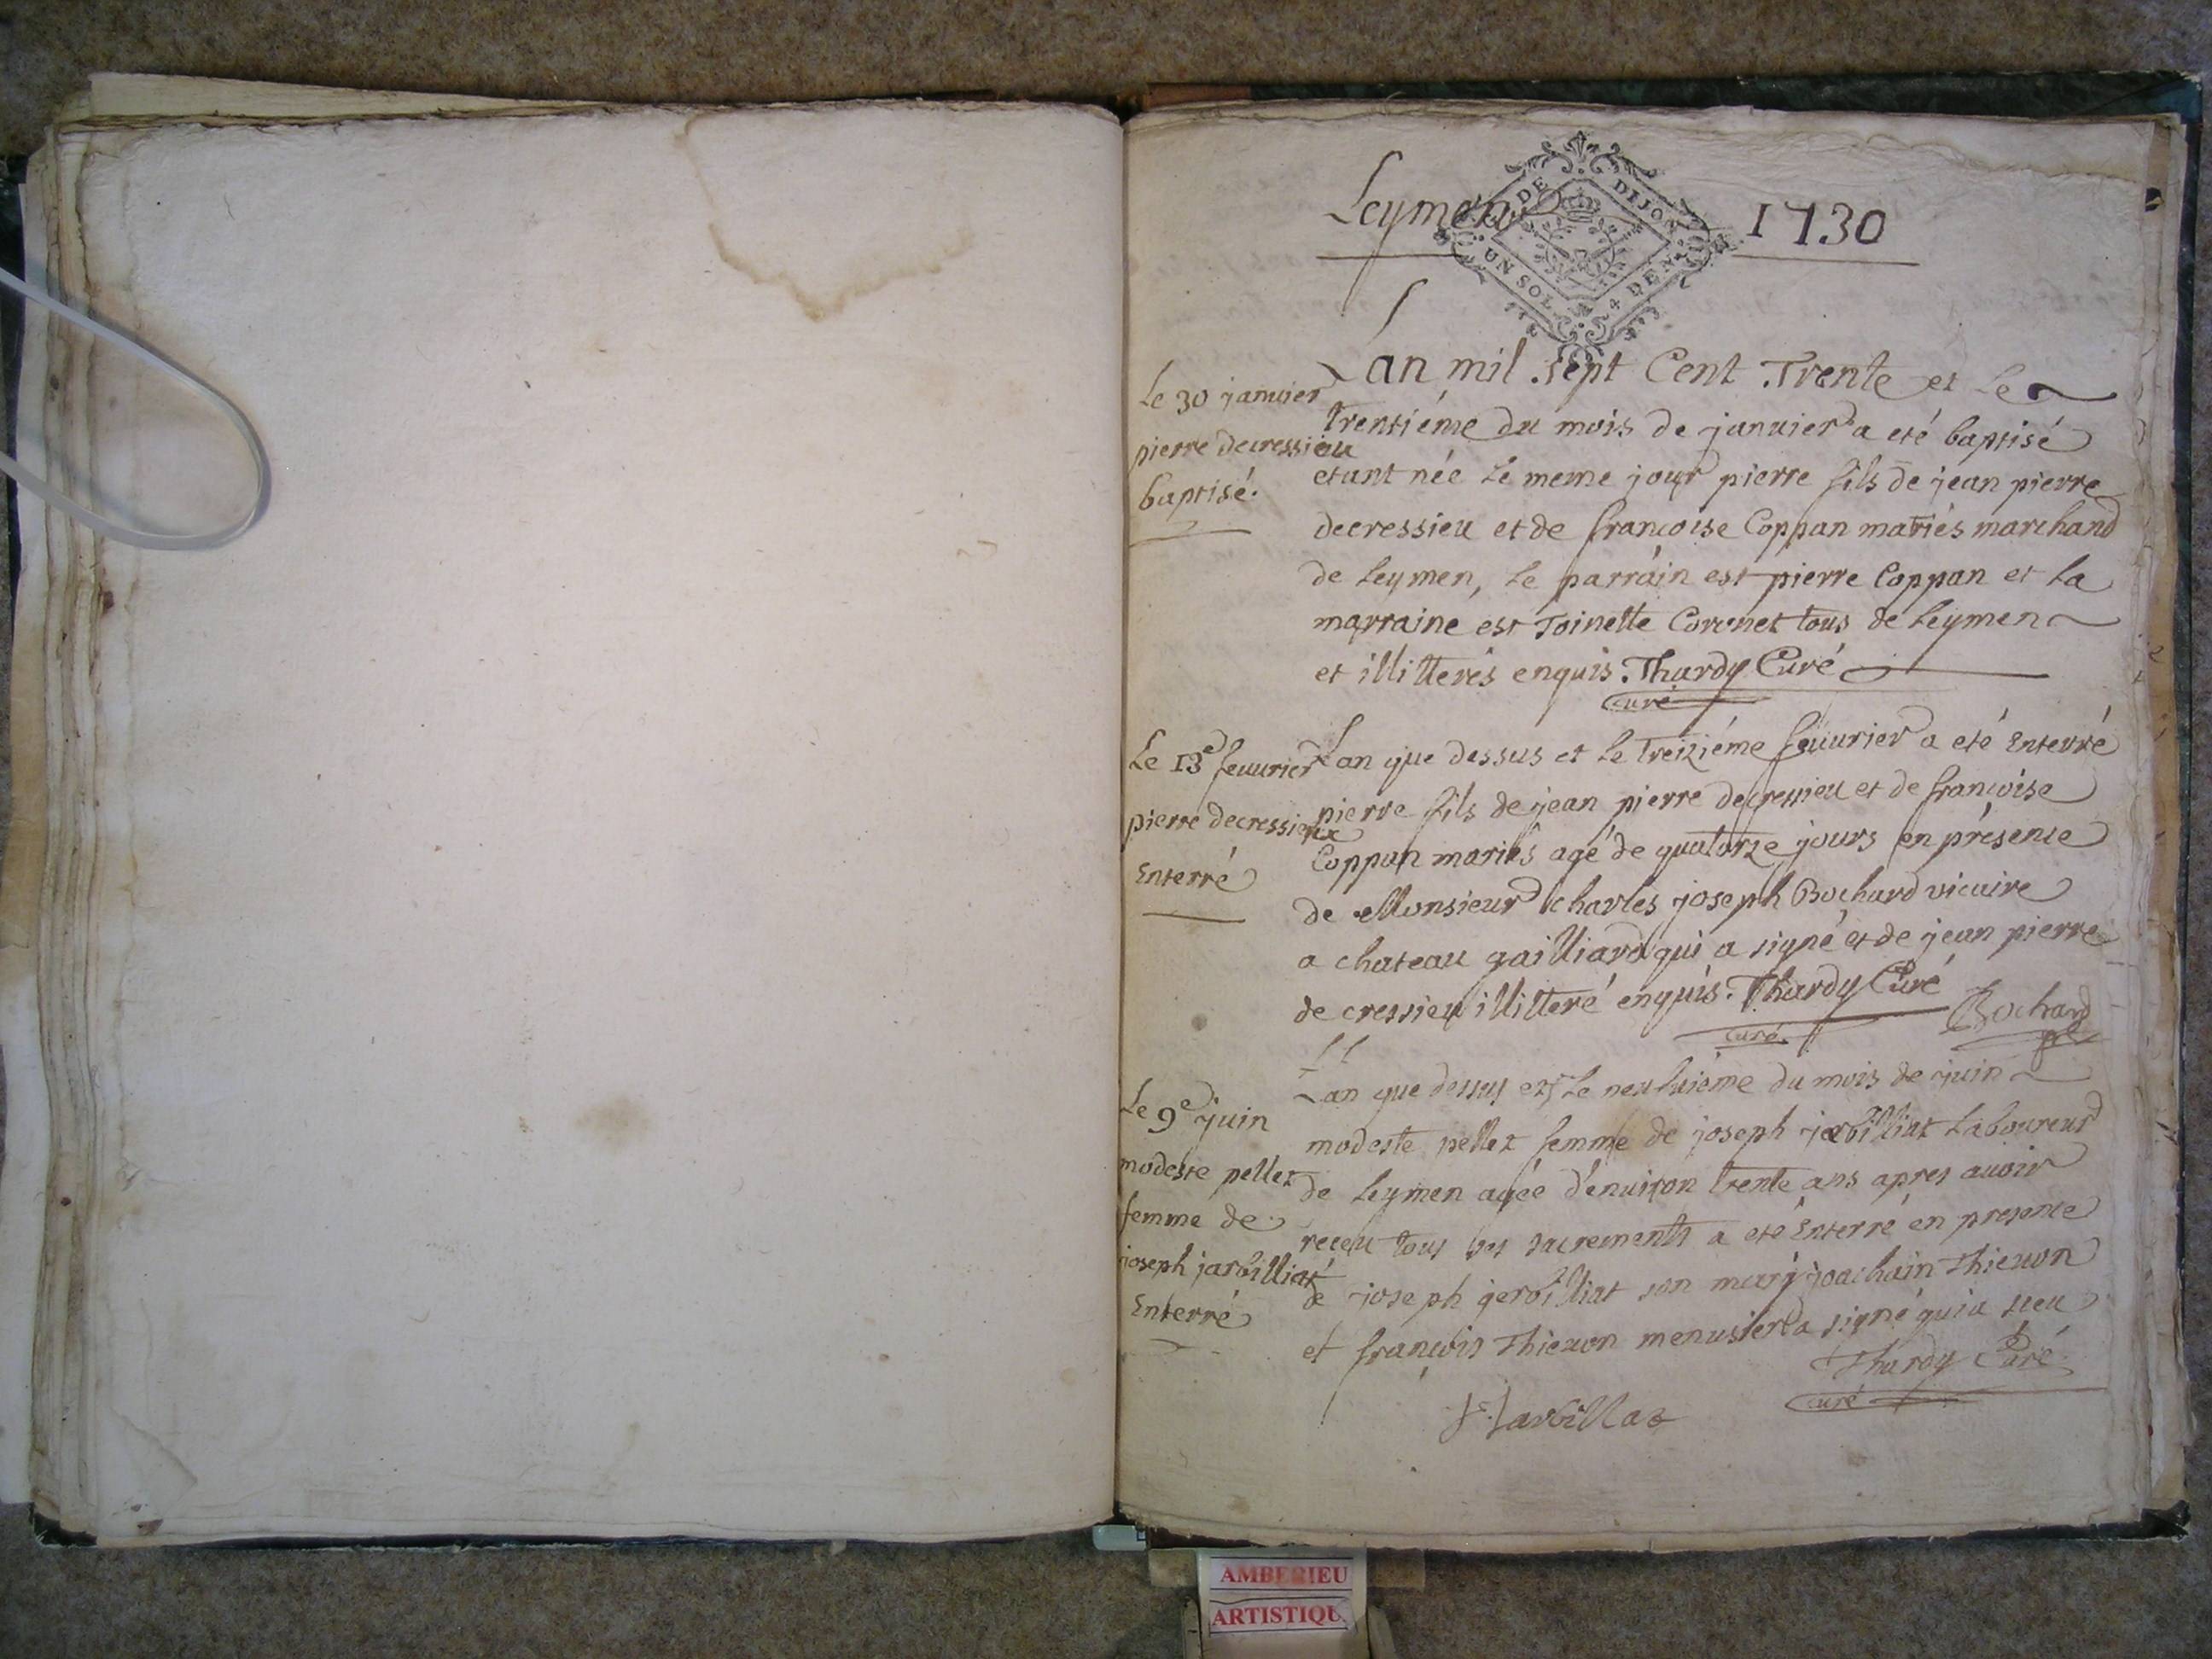 Leymen 1730
DE DIJON
UN SOL 4 DEN
Lan mil sept Cent Trente et Le
Le 30 januier
trentiéme du mois de januier a eté baptisé
pierre decressieu
etant née Le meme jour pierre fils de jean pierre
baptisé.
decressieu et de francoise Coppan mariés marchand
de Leymen, Le parrain est pierre Coppan et La
marraine est Toinette Coronet tous de Leymen
et illitterés enquis. Thardy Curé
curé
Le 13e feuurier
Lan que dessus et Le treiziéme feuurier a eté Enterré
pierre decressieux
pierre fils de jean pierre decressieu et de francoise
Enterré
Coppan mariés agé de quatorze jours en présence
de Monsieur charles joseph Bochard vicaire
a chateau gailliard qui a signé et de jean pierre
de cressieu illitteré enquis. Thardy Curé
curé. Bochard
Lan que dessus et Le neufuiéme du mois de juin
Le 9e juin
modeste pellet femme de joseph jarbilliat Laboureur
modeste pellet
de Leymen agée d'enuiron trente ans apres auoir
femme de
receu tous ses sacrements a eté Enterré en presence
joseph jarbilliat
de joseph gerbilliat son mary joachain Thieuon
Enterré
et françois Thieuon menusier a signé qui a sceu
Thardy Curé
curé
J Jarbillat
AMBERIEU
ARTISTIQU